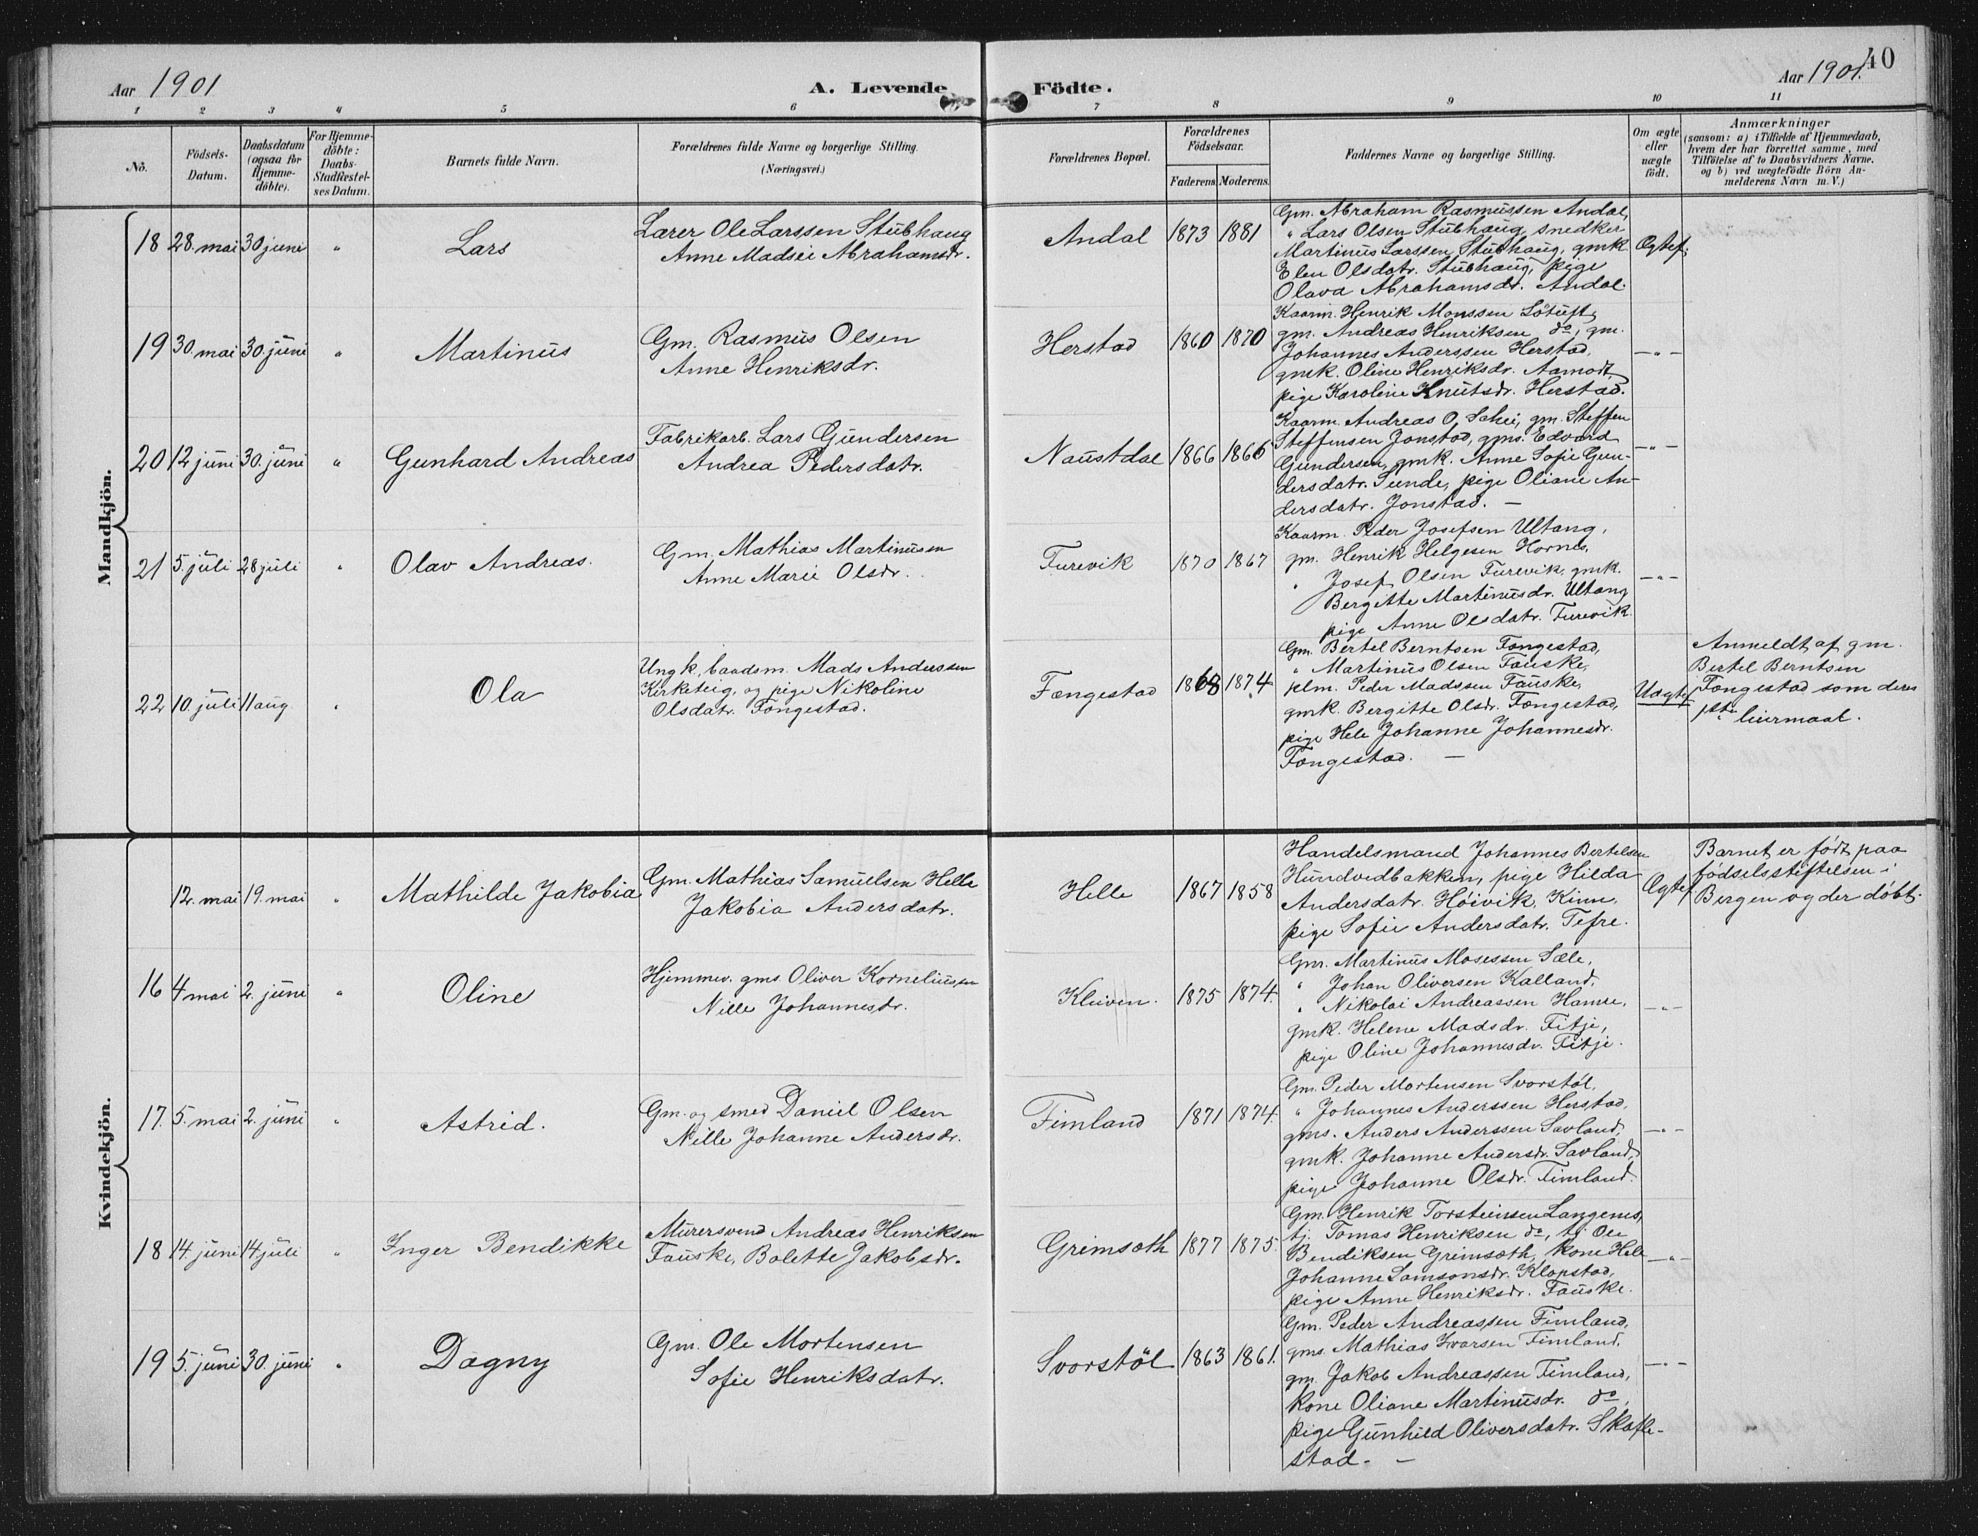 Aar 1901
A. Levende
Födte.
Aar 1901.
40
1 2 3 4 5 6 7 8 9 10 11
No.
Födsels-
Datum.
Daabsdatum
(ogsaa for
Hjemme-
döbte).
For Hjemme-
döbte:
Daabs-
Stadfæstel-
ses Datum.
Barnets fulde Navn.
Forældrenes fulde Navne og borgerlige Stilling.
(Næringsvei.)
Forældrenes Bopæl.
Forældrenes
Födselsaar.
Faderens. Moderens.
Faddernes Navne og borgerlige Stilling.
Om ægte
eller
uægte
födt.
Anmærkninger
(saasom: a) i Tilfælde af Hjemmedaab,
hvem der har forrettet samme, med
Tilföielse af to Daabsvidners Navne,
og b) ved uægtefödte Börn An-
melderens Navn m. V.)
Mandkjön.
18 28. mai 30 juni " Lars
Lærer Ole Larssen Stubhaug
Anne Madsei Abrahamsdr.
Andal 1873 1881
Gm. Abraham Rasmussen Andal,
" Lars Olsen Stubhaug, snedker
Martinus Larssen Stubhaug, gmk
Elen Olsdatr. Stubhaug, pige
Olava Abrahamsdr. Andal.
Ægtef.
19 30. mai 30. juni " Martinus
Gm. Rasmus Olsen
Anne Henriksdr.
Herstad 1860 1870
Kaarm. Henrik Monssen Lötuft,
gm. Andreas Henriksen do, gm.
Johannes Anderssen Herstad,
gmk. Oline Henriksdr. Aamot,
pige Karoline Knutsdr. Herstad.
— " —
20 12 juni 30. juni " Gunhard Andreas
Fabrikarb. Lars Gundersen
Andrea Pedersdatr.
Naustdal 1866 1866
Kaarm. Andreas O. Schei, gm. Steffen
Steffensen Jonstad, gms. Edvard
Gundersen, gmk. Anne Sofie Gun-
dersdatr. Sunde, pige Oliane An-
dersdatr. Jonstad. —
— " —
21 5. juli 28 juli " Olav Andreas.
Gm. Mathias Martinusen
Anne Marie Olsdr.
Furevik 1870 1867
Kaarm. Peder Josefsen Ultang,
gm. Henrik Helgesen Hornes,
" Josef Olsen Furevik, gmk.
Bergitte Martinusdr. Ultang
pige Anne Olsdatr. Furevik.
— " —
22 10. juli 11 aug " Ola
Ungk., baadsm. Mads Anderssen
Kirketeig, og pige Nikoline
Olsdatr. Fængestad.
Fængestad 1868 1874
Gm. Bertel Berntsen Fængestad,
" Martinus Olsen Fauske,
plm. Peder Madssen Fauske,
gmk. Bergitte Olsdr. Fængestad,
pige Hele Johanne Johannesdr.
Fængestad. —
Uægtef.
Anmeldt af gm.
Bertel Berntsen
Fængestad som deres
1ste leiermaal.
Kvindekjön.
12. mai 19. mai " Mathilde Jakobia
Gm. Mathias Samuelsen Helle
Jakobia Andersdatr.
Helle 1867 1858
Handelsmand Johannes Bertelsen
Hundvedbakken, pige Hilda
Andersdatr. Höivik, Kinn,
pige Sofie Andersdatr. Tefre.
Ægtef.
Barnet er födt paa
födselsstiftelsen i
Bergen og der döbt.
16 4 mai 2. juni " Oline
Hjemmev. gms Oliver Korneliussen
Nille Johannesdr.
Kleiven. 1875 1874.
Gm. Martinus Mosessen Sæle,
" Johan Oliversen Kalland,
" Nikolai Andreassen Hamre,
gmk. Helene Madsdr. Fitje,
pige Oline Johannesdr. Fitje.
— " —
17. 5. mai 2. juni " Astrid.
Gm. og smed Daniel Olsen
Nille Johanne Andersdr.
Fimland 1871 1874.
Gm. Peder Mortensen Svorstöl,
" Johannes Anderssen Herstad,
gms. Anders Anderssen Savland,
gmk. Johanne Andersdr. Savland,
pige Johanne Olsdr. Fimland.
— " —
18 14. juni 14 juli " Inger Bendikke
Murersvend Andreas Henriksen
Fauske, Bolette Jakobsdr.
Grimsæth 1877 1875.
Gm. Henrik Torsteinsen Langenes,
tj. Tomas Henriksen do, tj Ole
Bendiksen Grimsæth, kone Hele
Johanne Samsonsdr. Klopstad,
pige Anne Henriksdr. Fauske.
— " —
19 5. juni 30. juni " Dagny
Gm. Ole Mortensen
Sofie Henriksdatr.
Svorstöl 1863 1861.
Gm. Peder Andreassen Fimland,
gms. Mathias Ivarsen Fimland,
gm. Jakob Andreassen Fimland,
kone Oliane Martinusdr. do,
pige Gunhild Oliversdatr. Skafle-
stad. —
— " —